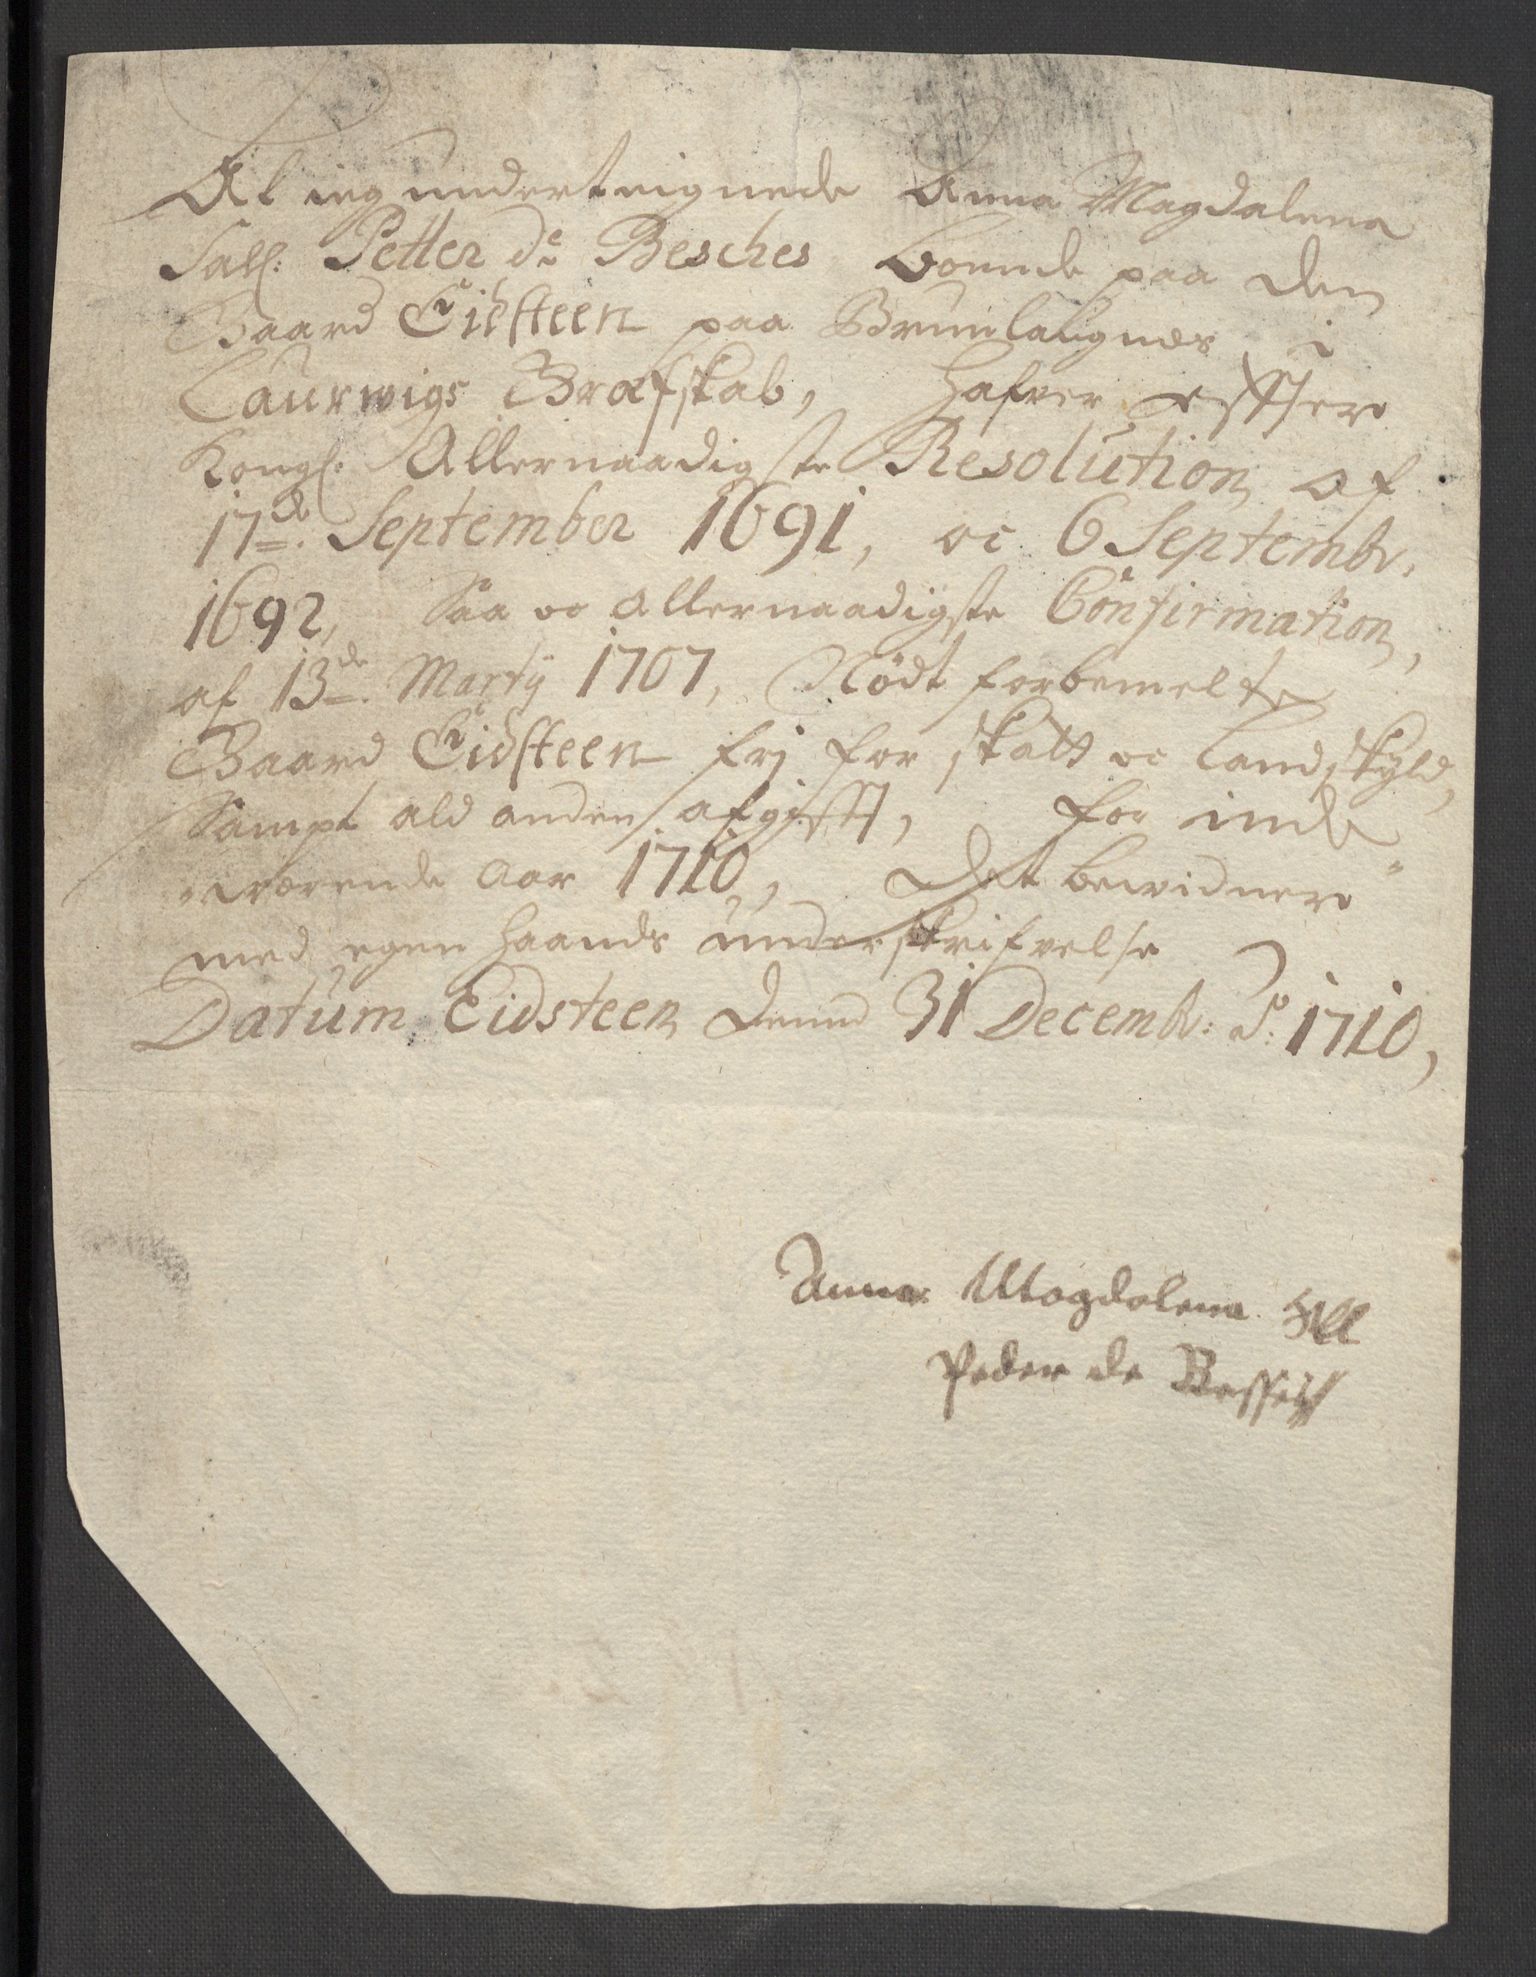 At ieg underteignede Anna Magdalena
Sall: Petter de Besches boende paa den
Gaard Eidsteen paa Brunlaugnæs i
Laurwigs Grafskab, hafver effter
Kongl: Allernaadigste Resolution af
17de. September 1691, oc 6 Septembr.
1692, Saa oc allernaadigste Confirmation,
af 13de. Martij 1707, Nødt forbemelte
Gaard Eidsteen frj for skatt oc Landskyld,
Sampt ald anden afgifft, for inde
werende Aar 1710,, Det bewidner
med egen haands underskrifvelse
Datum Eidsteen dend 31 Decemb: Ao: 1710,
Anna Magdalena Sll
Peder de